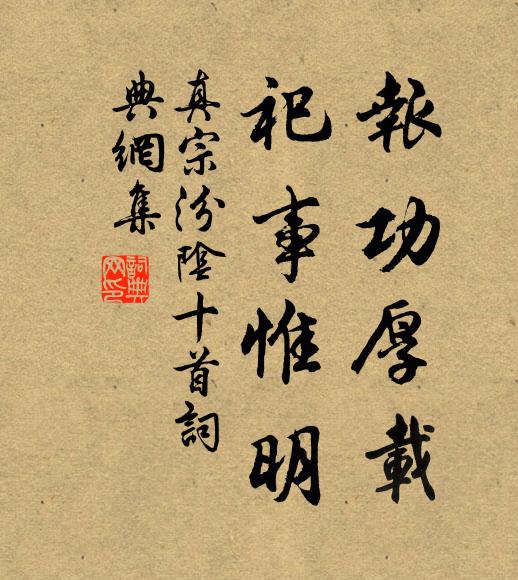 報功厚載
祀事惟明
真宗汾陰十首詞
典網集
詞典
网印